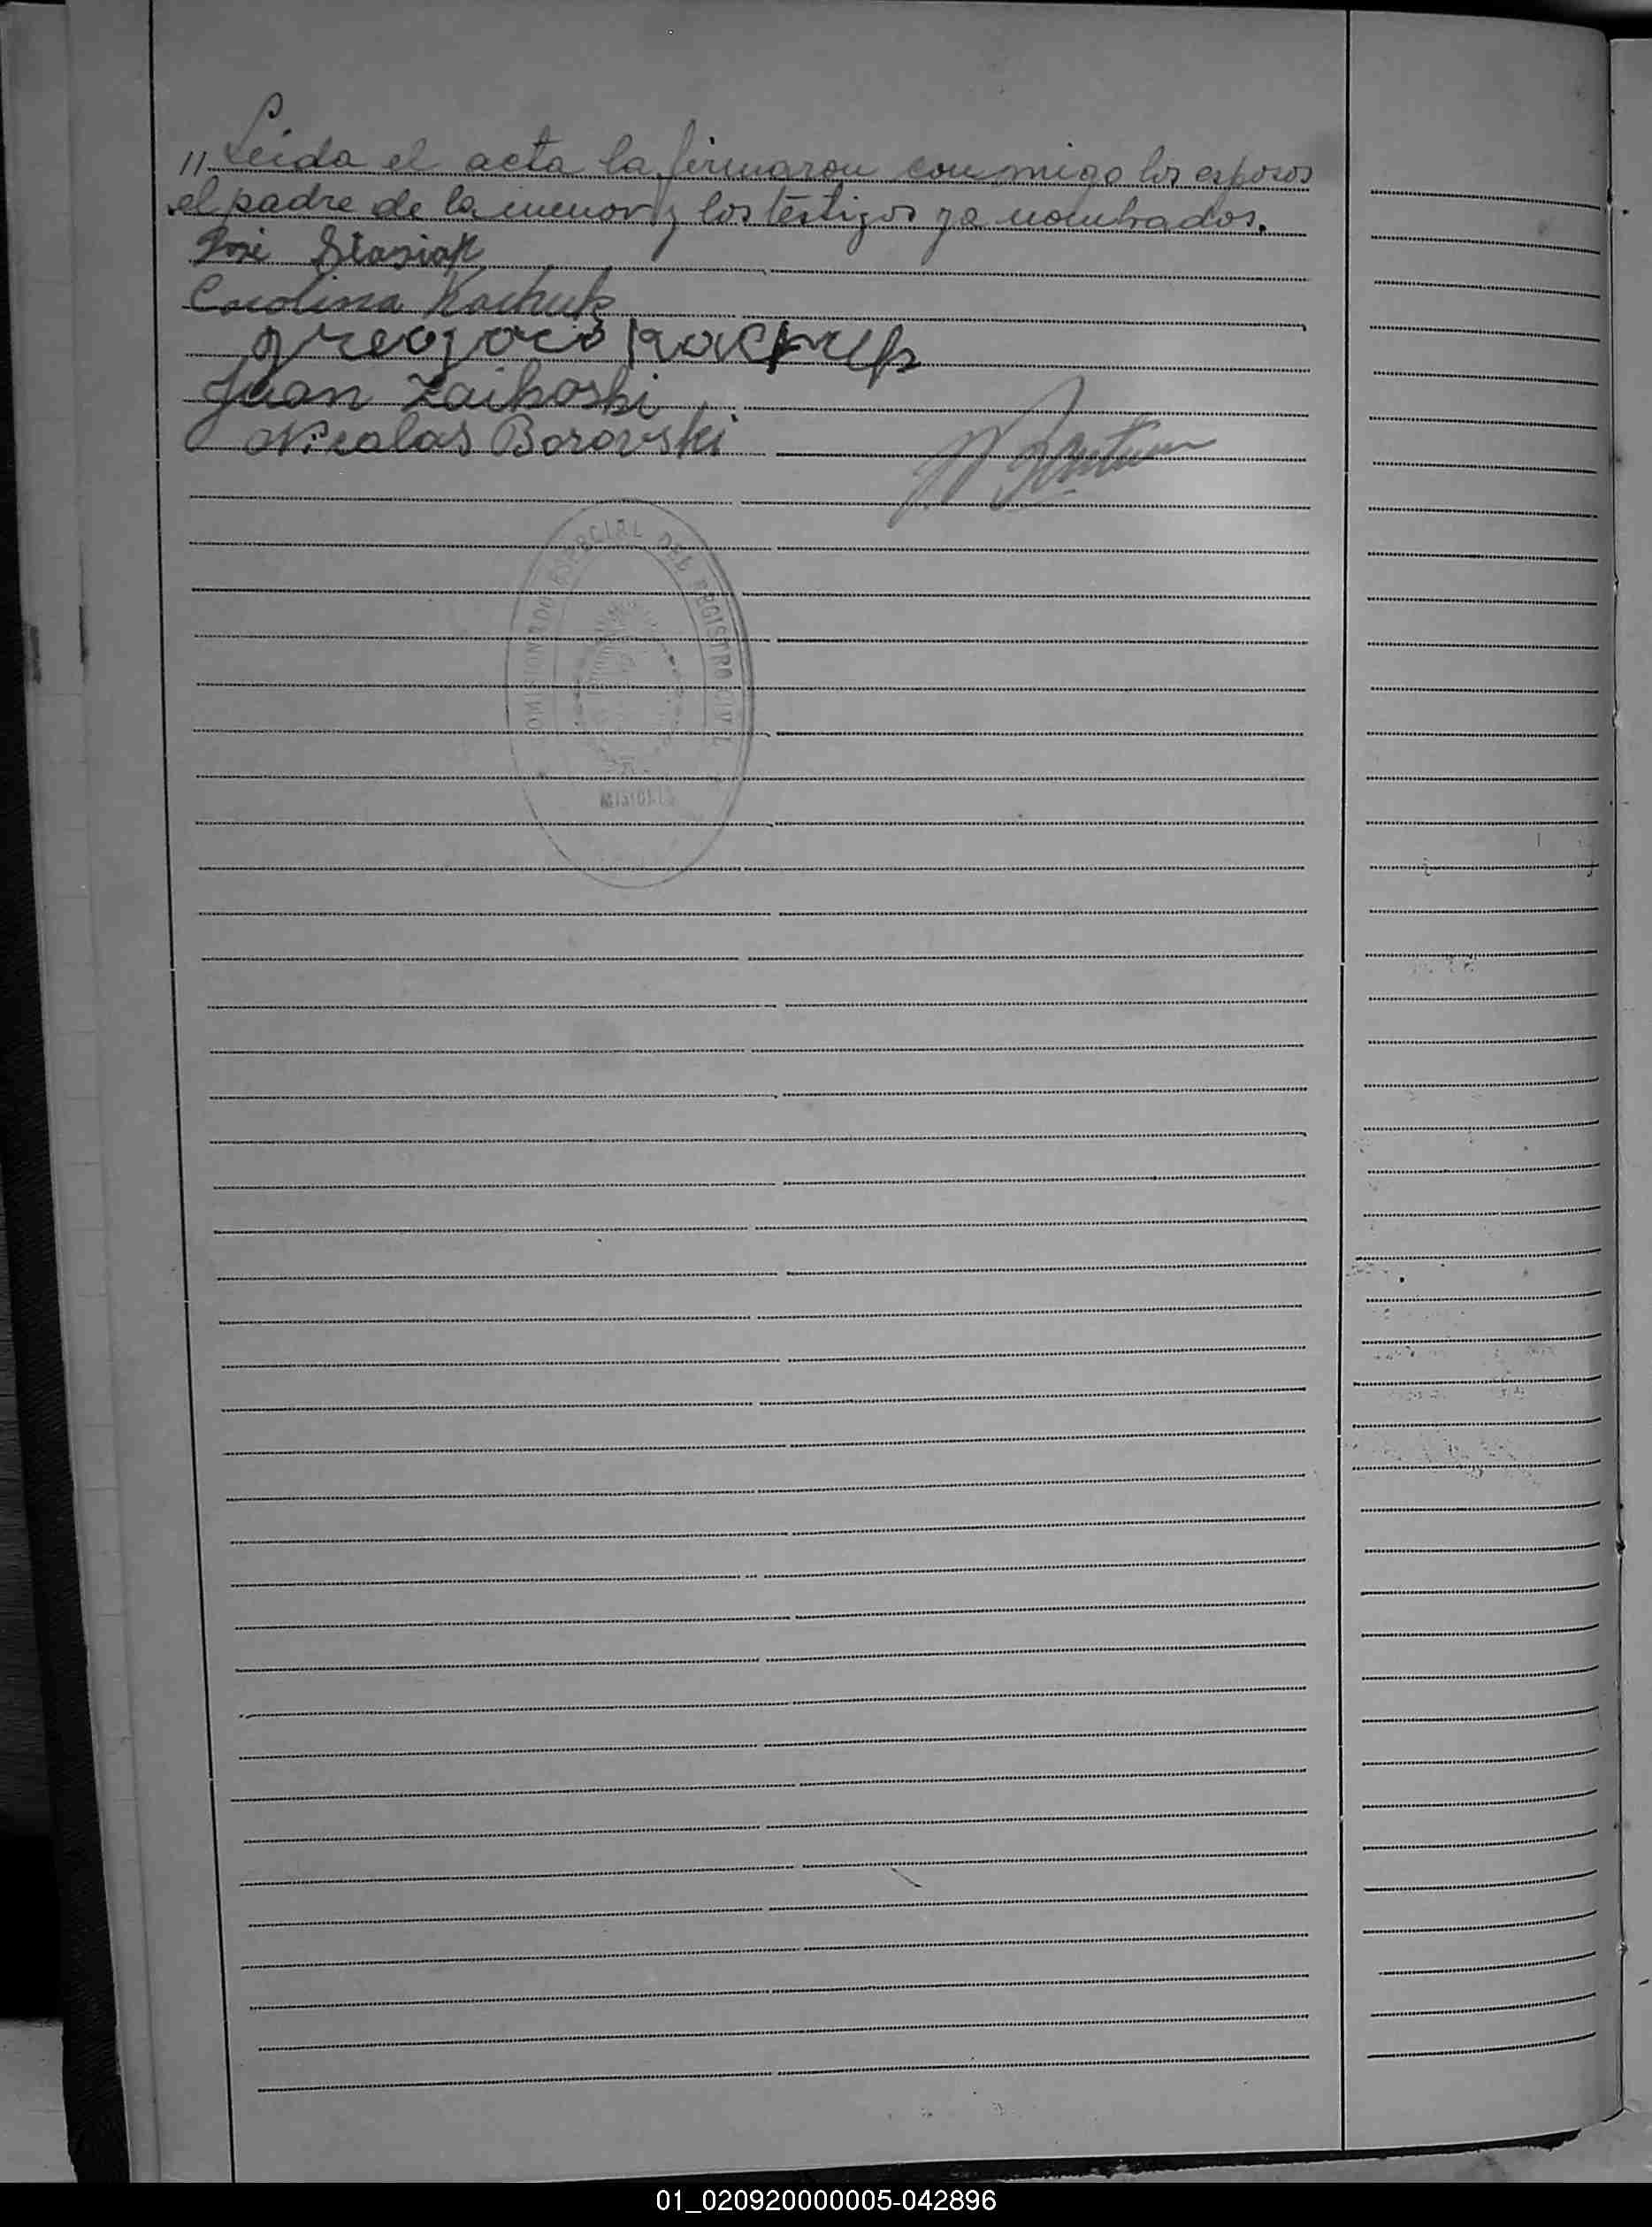 11 Leida el acta la firmaron conmigo los esposos
el padre de la menor y los testigos ya nombrados.
José Stasiak
Carolina Kachuk
Juan Zaikoski
Nicolas Borovski
COMISIONADO ESPECIAL DEL REGISTRO CIVIL
MISIONES
01_020920000005-042896